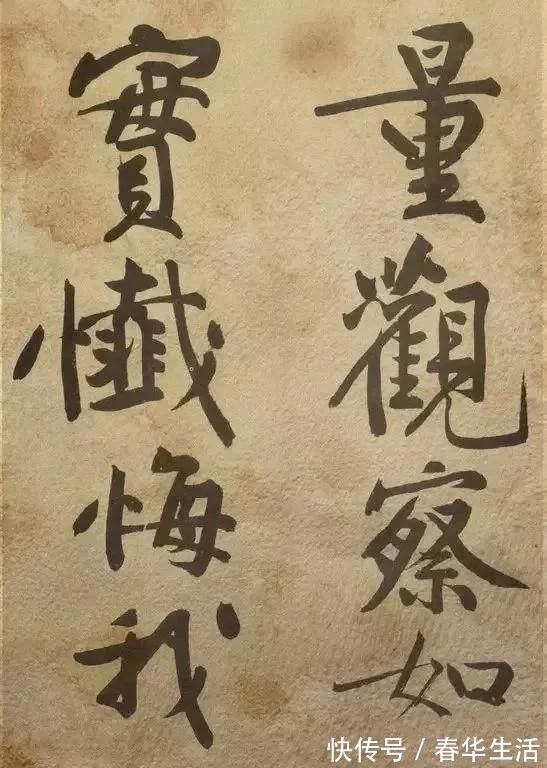 量觀察如
實懺悔我
快传号/春华生活